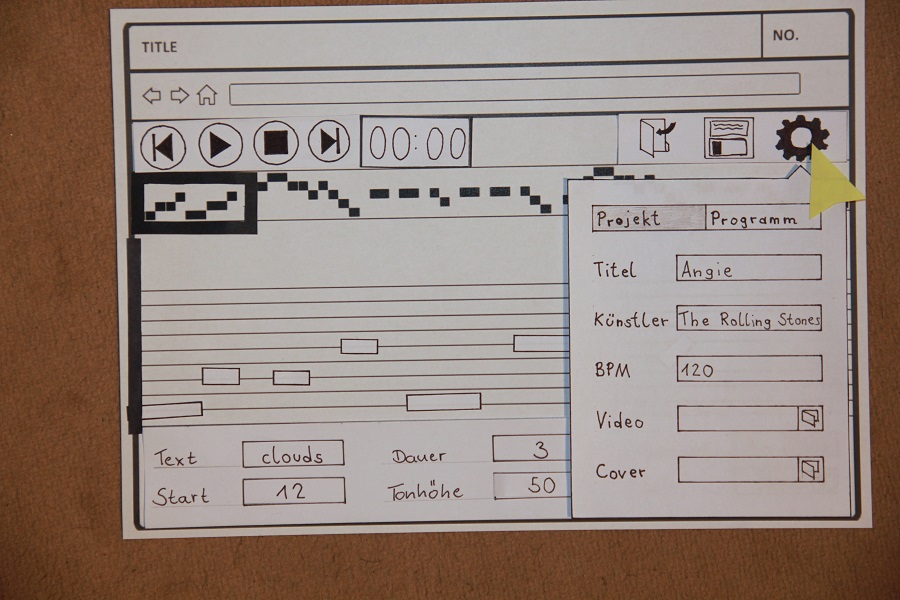 TITLE
NO.
00:00
Projekt
Programm
Titel
Angie
Künstler
The Rolling Stones
BPM
120
Video
Cover
Text
clouds
Dauer
3
Start
12
Tonhöhe
50